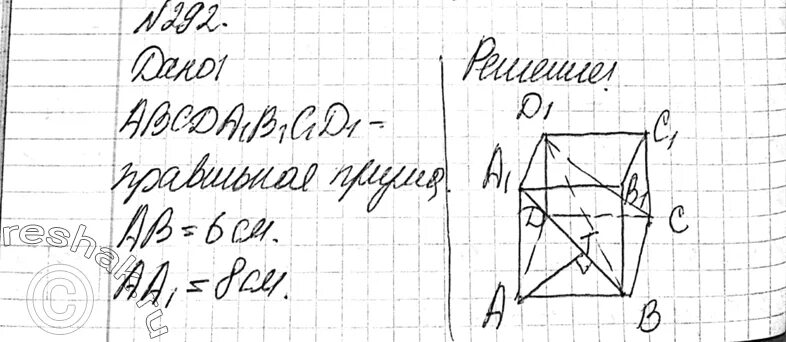 №292.
Дано:
ABCDA₁B₁C₁D₁ –
правильная призма.
AB = 6 см.
AA₁ = 8 см.
Решение:
D₁
C₁
A₁
B₁
D
C
T
A
B
reshak.ru
©